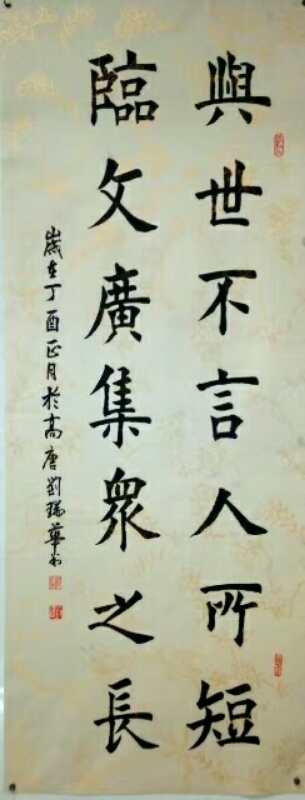 與世不言人所短
臨文廣集衆之長
歲在丁酉正月於高唐劉瑞華書